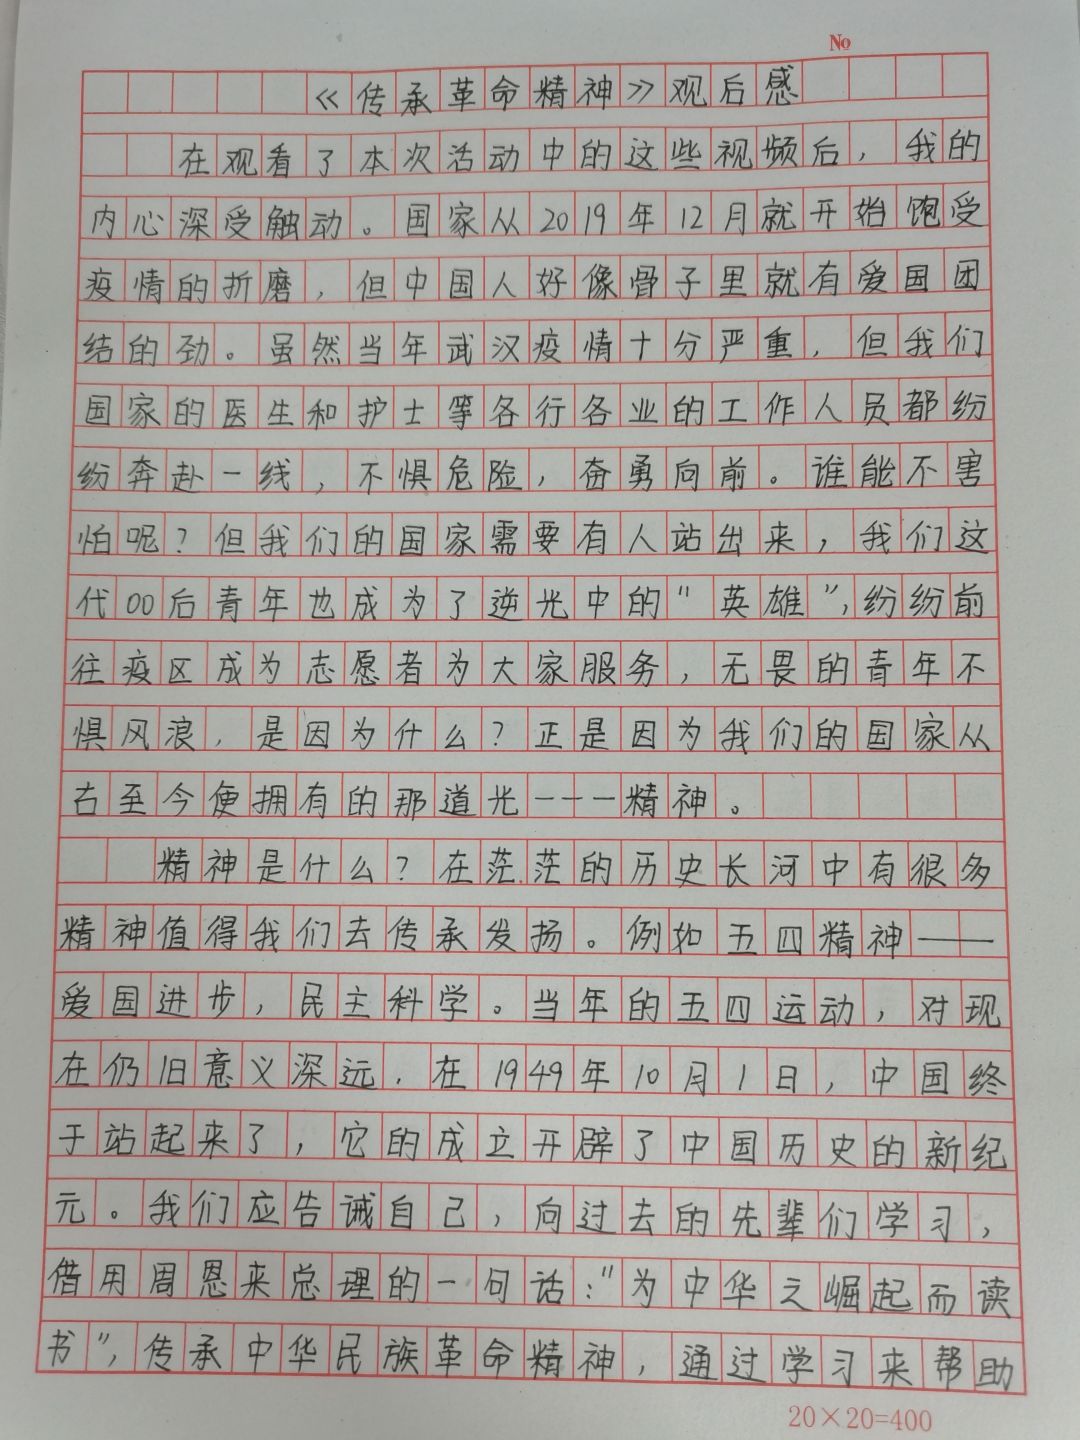 №
《传承革命精神》观后感
在观看了本次活动中的这些视频后，我的
内心深受触动。国家从2019年12月就开始饱受
疫情的折磨，但中国人好像骨子里就有爱国团
结的劲。虽然当年武汉疫情十分严重，但我们
国家的医生和护士等各行各业的工作人员都纷
纷奔赴一线，不惧危险，奋勇向前。谁能不害
怕呢？但我们的国家需要有人站出来，我们这
代00后青年也成为了逆光中的"英雄"，纷纷前
往疫区成为志愿者为大家服务，无畏的青年不
惧风浪，是因为什么？正是因为我们的国家从
古至今便拥有的那道光---精神。
精神是什么？在茫茫的历史长河中有很多
精神值得我们去传承发扬。例如五四精神——
爱国进步，民主科学。当年的五四运动，对现
在仍旧意义深远．在1949年10月1日，中国终
于站起来了，它的成立开辟了中国历史的新纪
元。我们应告诫自己，向过去的先辈们学习，
借用周恩来总理的一句话："为中华之崛起而读
书"，传承中华民族革命精神，通过学习来帮助
20×20=400